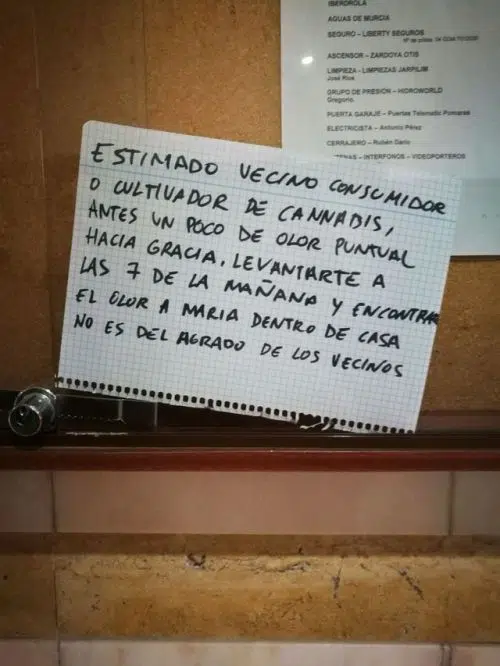 IBERDROLA
AGUAS DE MURCIA
SEGURO – LIBERTY SEGUROS
ASCENSOR – ZARDOYA OTIS
LIMPIEZA - LIMPIEZAS JARPILIM
José Ríos
GRUPO DE PRESIÓN – HIDROWORLD
Gregorio.
PUERTA GARAJE – Puertas Telematic Pomares
ELECTRICISTA – Antonio Pérez
CERRAJERO – Rubén Darío
- INTERFONOS - VIDEOPORTEROS
ESTIMADO VECINO CONSUMIDOR
O CULTIVADOR DE CANNABIS,
ANTES UN POCO DE OLOR PUNTUAL
HACIA GRACIA, LEVANTARTE A
LAS 7 DE LA MAÑANA Y ENCONTRAR
EL OLOR A MARIA DENTRO DE CASA
NO ES DEL AGRADO DE LOS VECINOS